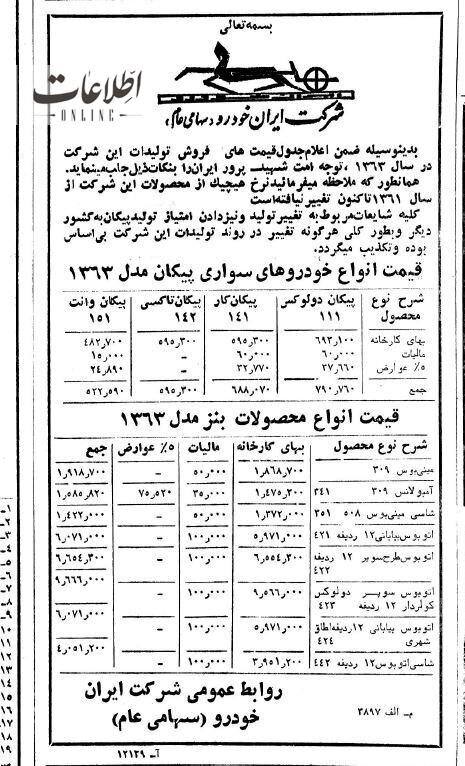 بسمه تعالی
اطلاعات
ONLINE
شرکت ایران خودرو «سهامی عام»
بدینوسیله ضمن اعلام جدول قیمت های فروش تولیدات این شرکت
در سال ۱۳۶۳، توجه امت شهید پرور ایران را بنکات ذیل جلب مینماید.
همانطور که ملاحظه میفرمائید نرخ هیچیک از محصولات این شرکت از
سال ۱۳۶۱ تاکنون تغییر نیافته است
کلیه شایعات مربوط به تغییر تولید و نیز دادن امتیاز تولید پیکان به کشور
دیگر و بطور کلی هرگونه تغییر در روند تولیدات این شرکت بی اساس
بوده و تکذیب میگردد.
قیمت انواع خودروهای سواری پیکان مدل ۱۳۶۳
شرح نوع محصول | پیکان دولوکس ۱۱۱ | پیکان کار ۱۴۱ | پیکان تاکسی ۱۴۲ | پیکان وانت ۱۵۱
بهای کارخانه | ۶۹۳٫۱۰۰ | ۵۹۵٫۳۰۰ | ۵۹۵٫۳۰۰ | ۴۸۲٫۷۰۰
مالیات | ۶۰٫۰۰۰ | ۶۰٫۰۰۰ | – | ۱۵٫۰۰۰
۵٪ عوارض | ۳۷٫۶۶۰ | ۳۲٫۷۷۰ | – | ۲۴٫۸۹۰
جمع | ۷۹۰٫۷۶۰ | ۶۸۸٫۰۷۰ | ۵۹۵٫۳۰۰ | ۵۲۲٫۵۹۰
قیمت انواع محصولات بنز مدل ۱۳۶۳
شرح نوع محصول | بهای کارخانه | مالیات | ۵٪ عوارض | جمع
مینی‌بوس ۳۰۹ | ۱٫۸۶۸٫۷۰۰ | ۵۰٫۰۰۰ | – | ۱٫۹۱۸٫۷۰۰
آمبولانس ۳۰۹ ۳۴۱ | ۱٫۴۷۵٫۳۰۰ | ۳۵٫۰۰۰ | ۷۵٫۵۲۰ | ۱٫۵۸۵٫۸۲۰
شاسی مینی‌بوس ۵۰۸ ۳۵۱ | ۱٫۳۷۲٫۰۰۰ | ۵۰٫۰۰۰ | – | ۱٫۴۲۲٫۰۰۰
اتوبوس بیابانی ۱۲ ردیفه ۴۲۱ | ۵٫۹۷۱٫۰۰۰ | ۱۰۰٫۰۰۰ | – | ۶٫۰۷۱٫۰۰۰
اتوبوس طرح سوپر ۱۲ ردیفه ۴۲۲ | ۶٫۵۵۴٫۳۰۰ | ۱۰۰٫۰۰۰ | – | ۶٫۶۵۴٫۳۰۰
اتوبوس سوپر دولوکس کولردار ۱۲ ردیفه ۴۲۳ | ۹٫۵۶۶٫۰۰۰ | ۱۰۰٫۰۰۰ | – | ۹٫۶۶۶٫۰۰۰
اتوبوس بیابانی ۱۲ ردیفه اطاق شهری ۴۲۴ | ۵٫۹۷۱٫۰۰۰ | ۱۰۰٫۰۰۰ | – | ۶٫۰۷۱٫۰۰۰
شاسی اتوبوس ۱۲ ردیفه ۴۴۲ | ۳٫۹۵۱٫۲۰۰ | ۱۰۰٫۰۰۰ | – | ۴٫۰۵۱٫۲۰۰
روابط عمومی شرکت ایران
خودرو (سهامی عام)
م‍ـ الف ۳۸۹۷
آـ ۱۲۱۲۹